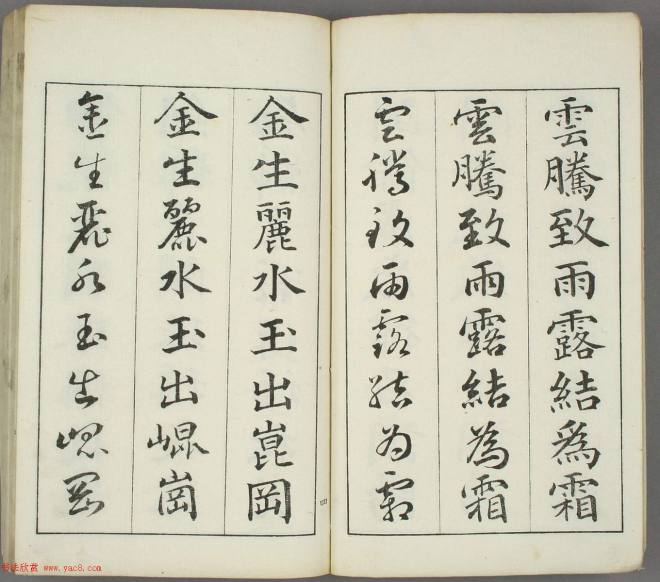 雲騰致雨露結爲霜
雲騰致雨露結為霜
雲騰致雨露結为霜
金生麗水玉出崑岡
金生麗水玉出崐崗
金生麗水玉出崐岡
四
书法欣赏 www.yac8.com